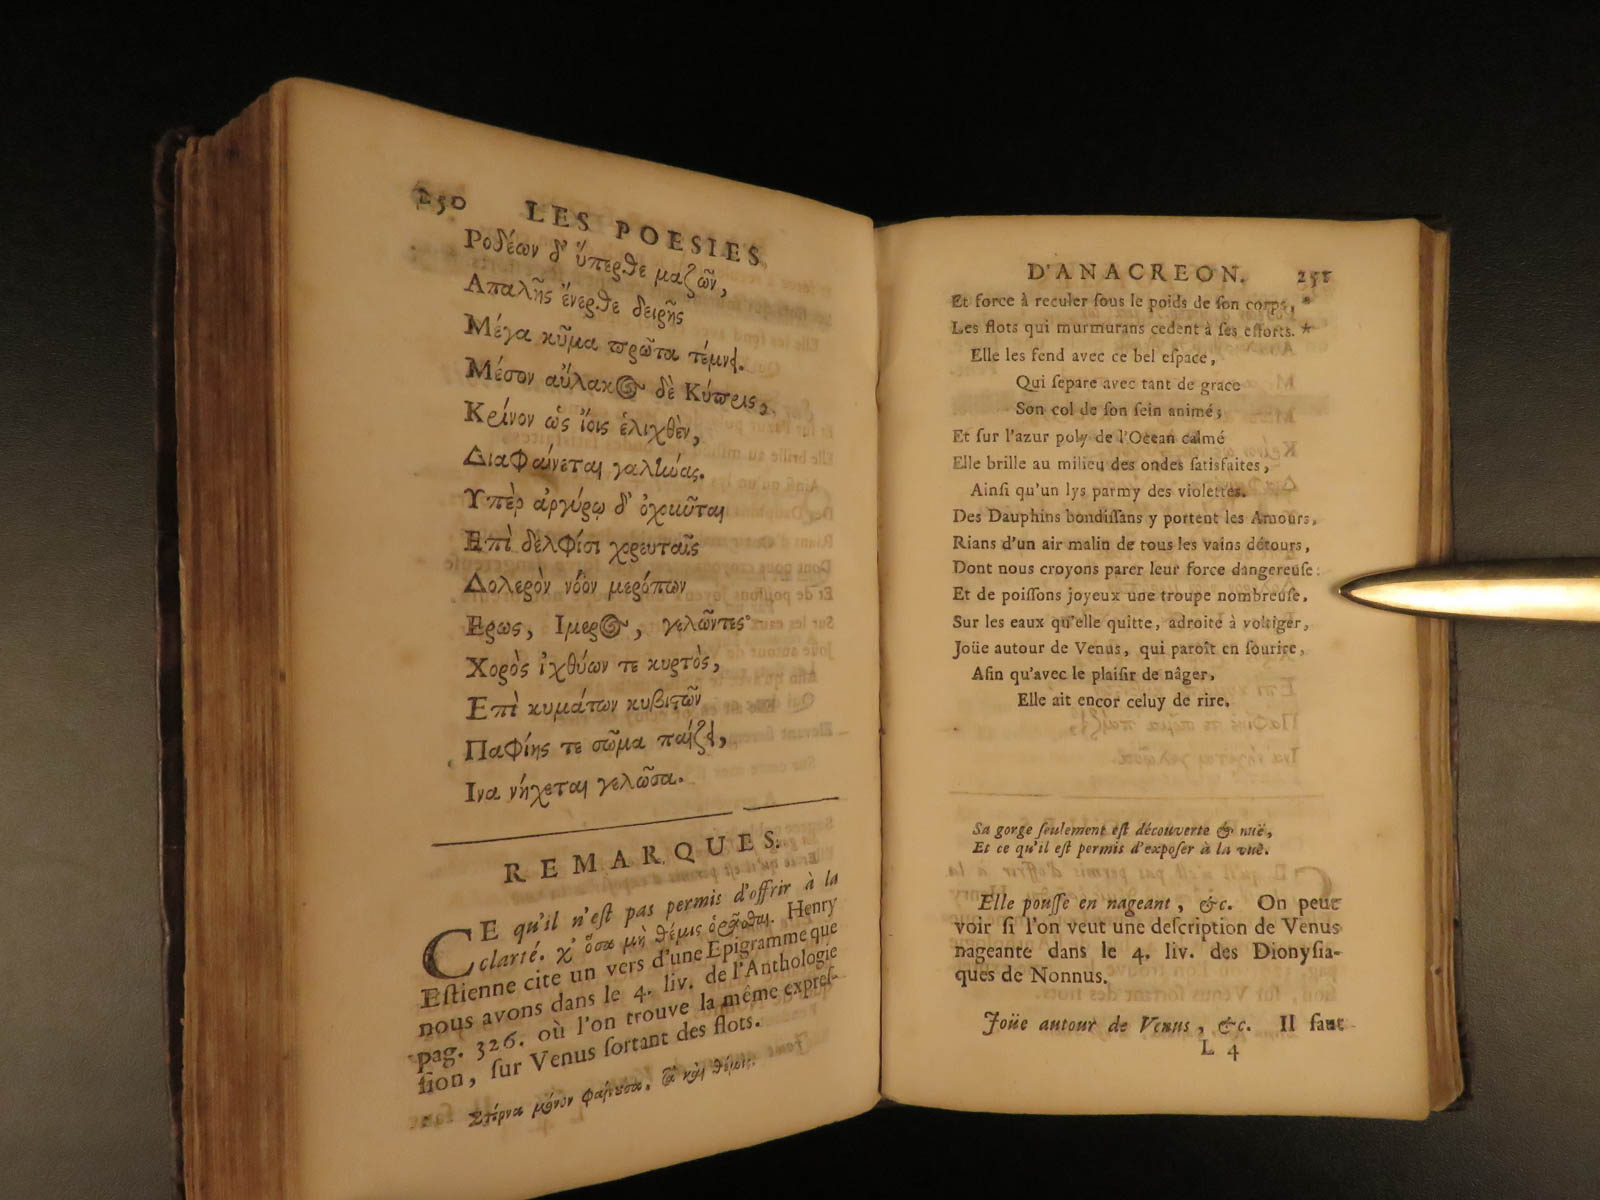 250 LES POESIES
Ροδέων δ' ὕπερθε μαζῶν,
Απαλῆς ἔνερθε δειρῆς
Μέγα κῦμα πρῶτα τέμνει.
Μέσον αὔλακος δὲ Κύπρις,
Κρίνον ὡς ἴοις ἑλιχθὲν,
Διαφαίνεται γαλήνας.
Υπὲρ ἀργύρῳ δ' ὀχεῦται
Επὶ δελφῖσι χορευταῖς
Δολερὸν νόον μερόπων
Ερως, Ιμερος, γελῶντες·
Χορὸς ἰχθύων τε κυρτὸς,
Επὶ κυμάτων κυβιτῶν
Παφίης τε σῶμα παίζει,
Ινα νήχεται γελῶσα.
REMARQUES.
CE qu'il n'est pas permis d'offrir à la
clarté. χ' ὅσα μὴ θέμις ὁρᾶσθαι. Henry
Estienne cite un vers d'une Epigramme que
nous avons dans le 4. liv. de l'Anthologie
pag. 326. où l'on trouve la même expres-
sion, sur Venus sortant des flots.
Στέρνα μόνον φαίνουσα, τὰ καὶ θέμις.
D'ANACREON. 251
Et force à reculer ſous le poids de ſon corps, *
Les flots qui murmurans cedent à ſes efforts. *
Elle les fend avec ce bel eſpace,
Qui ſepare avec tant de grace
Son col de ſon ſein animé;
Et ſur l'azur poly de l'Ocean calmé
Elle brille au milieu des ondes ſatisfaites,
Ainſi qu'un lys parmy des violettes.
Des Dauphins bondiſſans y portent les Amours,
Rians d'un air malin de tous les vains détours,
Dont nous croyons parer leur force dangereuſe:
Et de poiſſons joyeux une troupe nombreuſe,
Sur les eaux qu'elle quitte, adroite à voltiger,
Joüe autour de Venus, qui paroît en ſourire,
Afin qu'avec le plaiſir de nâger,
Elle ait encor celuy de rire.
Sa gorge ſeulement eſt découverte & nuë,
Et ce qu'il eſt permis d'expoſer à la vuë.
Elle pouſſe en nageant, &c. On peut
voir ſi l'on veut une deſcription de Venus
nageante dans le 4. liv. des Dionyſia-
ques de Nonnus.
Joüe autour de Venus, &c. Il faut
L 4